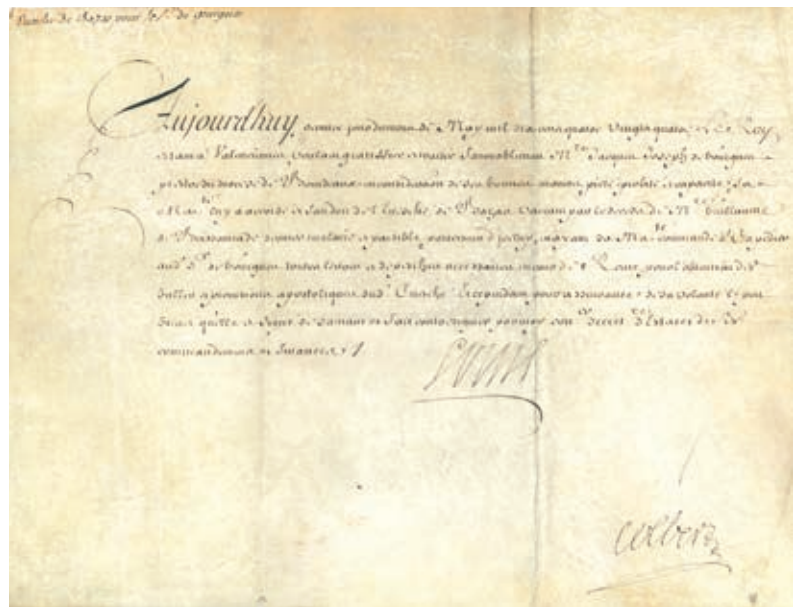 de Bazas pour le Sr de gourgues
Aujourdhuy dernier jour du mois de May mil six cens quatre Vingts quatre Le Roy
estant a Valenciennes, voulant gratiffier et traitter favorablement Mre Jacques Joseph de
prestre du diocese de en consideration de ses bonnes moeurs pieté probité et capacité Sa
Maté luy a accordé et fait don de l'Evesché de vacant par le deceds de Mre Guillaume
de dernier titulaire et paisible possesseur d'Iceluy, m'ayant Sa Maté commandé d'expedier
audt Sr de toutes lettres et depesches necessaires en cour de Rome pour l'obtention des
bulles et provisions apostoliques dudt Evesché Et cependant pour asseurance de sa volonté
Brevet qu'elle a signé de sa main et fait contresigner par moy son secretre d'Estat et de ses
commandemens et finances
Louis
Colbert